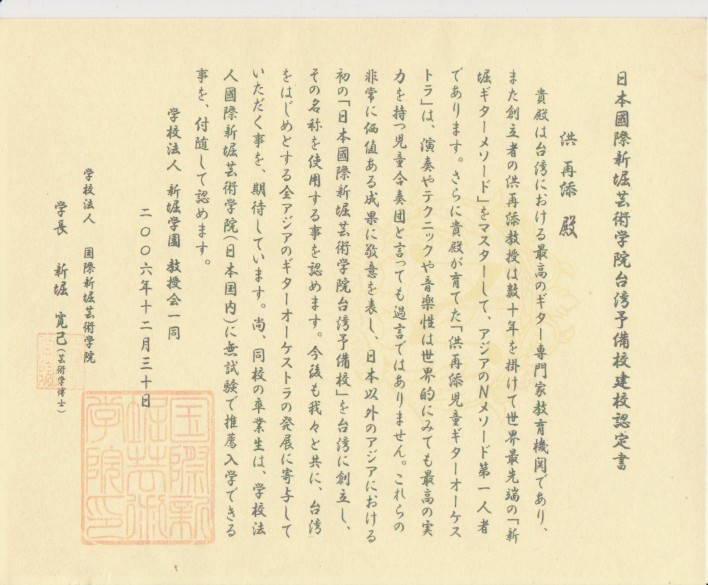 日本國際新堀芸術学院台湾予備校建校認定書
洪再添殿
貴殿は台湾における最高のギター専門家教育機関であり、
また創立者の洪再添教授は数十年を掛けて世界最先端の「新
堀ギターメソード」をマスターして、アジアのNメソード第一人者
であります。さらに貴殿が育てた「洪再添児童ギターオーケス
トラ」は、演奏やテクニックや音楽性は世界的にみても最高の実
力を持つ児童合奏団と言っても過言ではありません。これらの
非常に価値ある成果に敬意を表し、日本以外のアジアにおける
初の「日本國際新堀芸術学院台湾予備校」を台湾に創立し、
その名称を使用する事を認めます。今後も我々と共に、台湾
をはじめとする全アジアのギターオーケストラの発展に寄与して
いただく事を、期待しています。尚、同校の卒業生は、学校法
人國際新堀芸術学院(日本国内)に無試験で推薦入学できる
事を、付随して認めます。
学校法人 新堀学園 教授会一同
二〇〇六年十二月三十日
学校法人 国際新堀芸術学院
学長 新堀 寛己(芸術学博士)
国際新
堀芸術
学院印